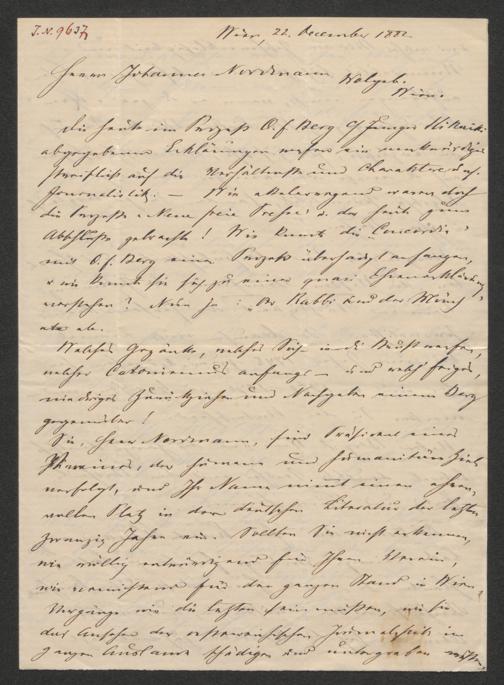 J.N. 9637
Wien, 22. December 1882
Herrn Johannes Nordmann Wolgeb.
Wien.
Die heute im Prozeß O. f. Berg
abgegebenen Erklärungen werfen ein merkwürdiges
Streiflicht auf die Verhältnisse und Charaktere der
Journalistik. —
die Prozesse „Neue freie Presse“ u. der heute zum
Abschlusse gebrachte! Wie konnte die „Concordia“
mit O. f. Berg einen Prozeß überhaupt anfangen,
u wie konnte sie sich zu einer quasi Ehrenerklärung
verstehen? Nun ja: „Der Rabbi und der Mönch“
etc etc.
Welches Gezänke, welches Sich in die Brust werfen,
welcher Catonismus anfangs — und welch feiges,
niedriges Zurückziehen und Nachgeben einem Berg
gegenüber!
Sie, Herr Nordmann, sind Präsident eines
Vereines, der humane und humanitäre Ziele
verfolgt, und Ihr Name nimmt einen ehren-
vollen Platz in der deutschen Literatur der letzten
zwanzig Jahre ein. Sollten Sie nicht erkennen,
wie völlig entwürdigend für Ihren Verein,
wie vernichtend für den ganzen Stand in Wien
Vorgänge wie die letzten sein müssen, wie sie
das Ansehen der österreichischen Journalistik im
ganzen Auslande schädigen und untergraben müssen,